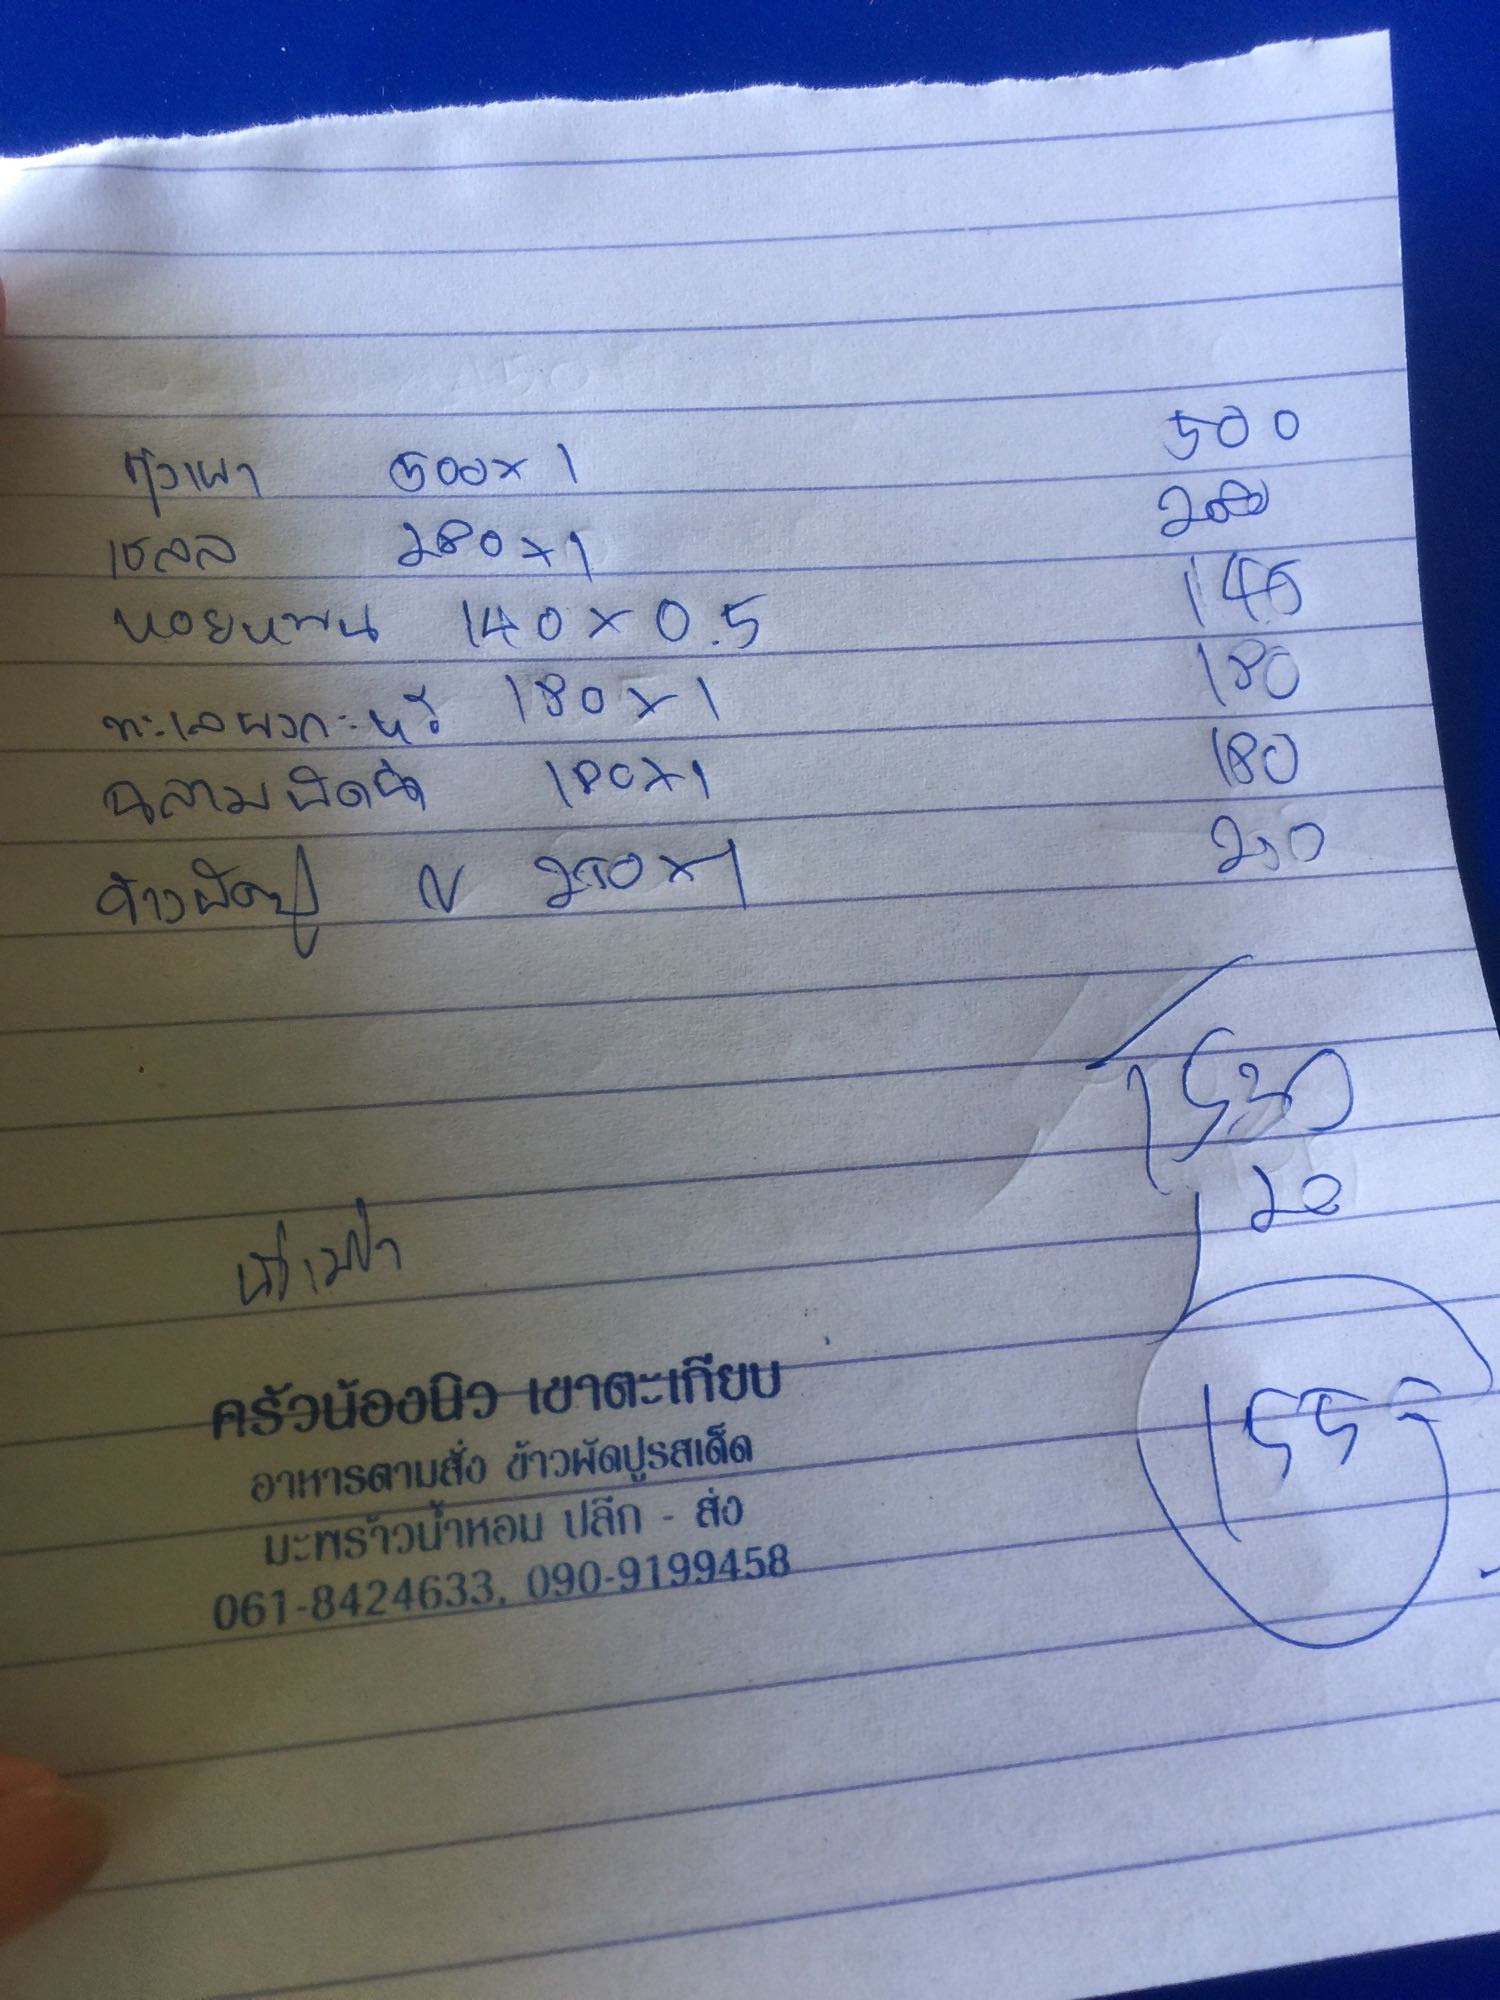 กุ้งเผา 500 x 1 500
เซลล 280 x 1 280
หอยหวาน 140 x 0.5 140
ทะเลผงกะหรี่ 180 x 1 180
ฉลามผัดฉ่า 180 x 1 180
ข้าวผัดปู ญ 250 x 1 250
1530
20
น้ำเปล่า
155
ครัวน้องนิว เขาตะเกียบ
อาหารตามสั่ง ข้าวผัดปูรสเด็ด
มะพร้าวน้ำหอม ปลีก - ส่ง
061-8424633, 090-9199458